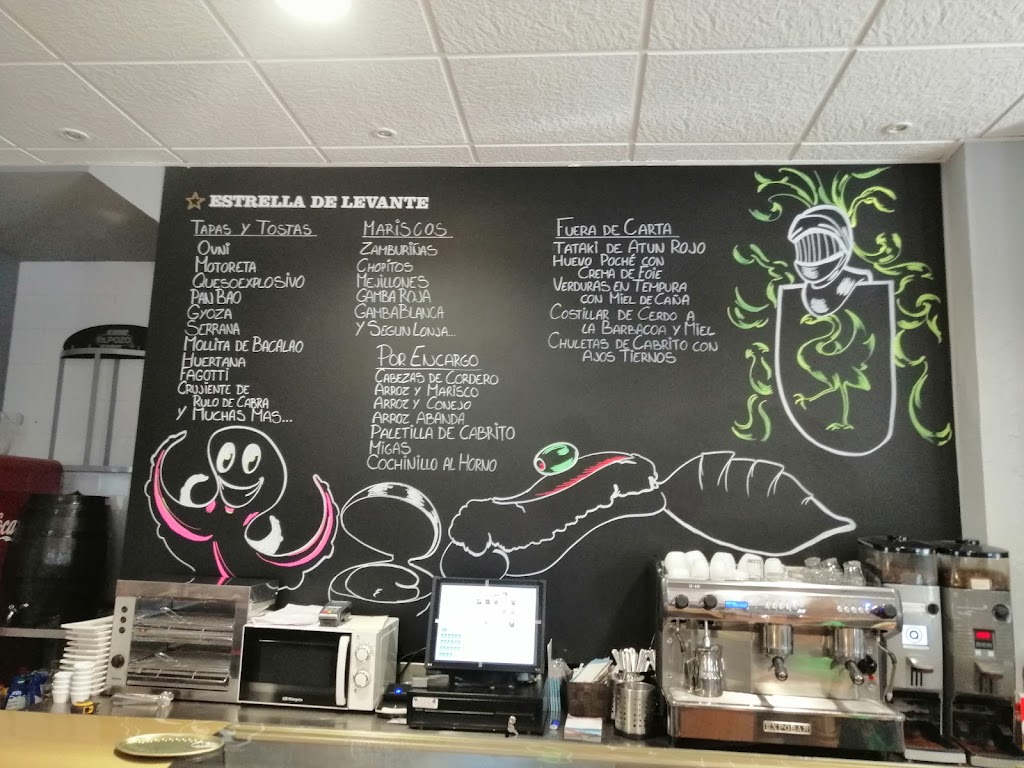 ESTRELLA DE LEVANTE
TAPAS Y TOSTAS
OVNI
MOTORETA
QUESOEXPLOSIVO
PAN BAO
GYOZA
SERRANA
MOLLITA DE BACALAO
HUERTANA
FAGOTTI
CRUJIENTE DE
RULO DE CABRA
Y MUCHAS MAS...
MARISCOS
ZAMBURIÑAS
CHOPITOS
MEJILLONES
GAMBA ROJA
GAMBA BLANCA
Y SEGUN LONJA...
POR ENCARGO
CABEZAS DE CORDERO
ARROZ Y MARISCO
ARROZ Y CONEJO
ARROZ ABANDA
PALETILLA DE CABRITO
MIGAS
COCHINILLO AL HORNO
FUERA DE CARTA
TATAKI DE ATUN ROJO
HUEVO POCHÉ CON
CREMA DE FOIE
VERDURAS EN TEMPURA
CON MIEL DE CAÑA
COSTILLAR DE CERDO A
LA BARBACOA Y MIEL
CHULETAS DE CABRITO CON
AJOS TIERNOS
ELPOZO
EXPOBAR